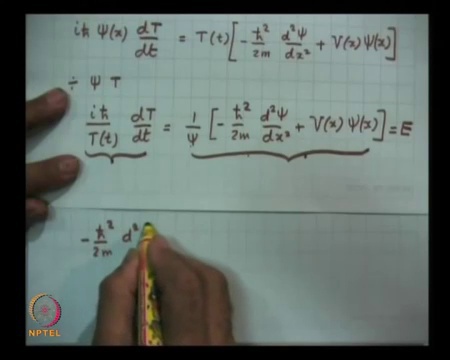 iħ Ψ(x) dT/dt = T(t) [ - ħ²/2m d²Ψ/dx² + V(x) Ψ(x) ]
÷ Ψ T
iħ/T(t) dT/dt = 1/Ψ [ - ħ²/2m d²Ψ/dx² + V(x) Ψ(x) ] = E
- ħ²/2m d²
NPTEL